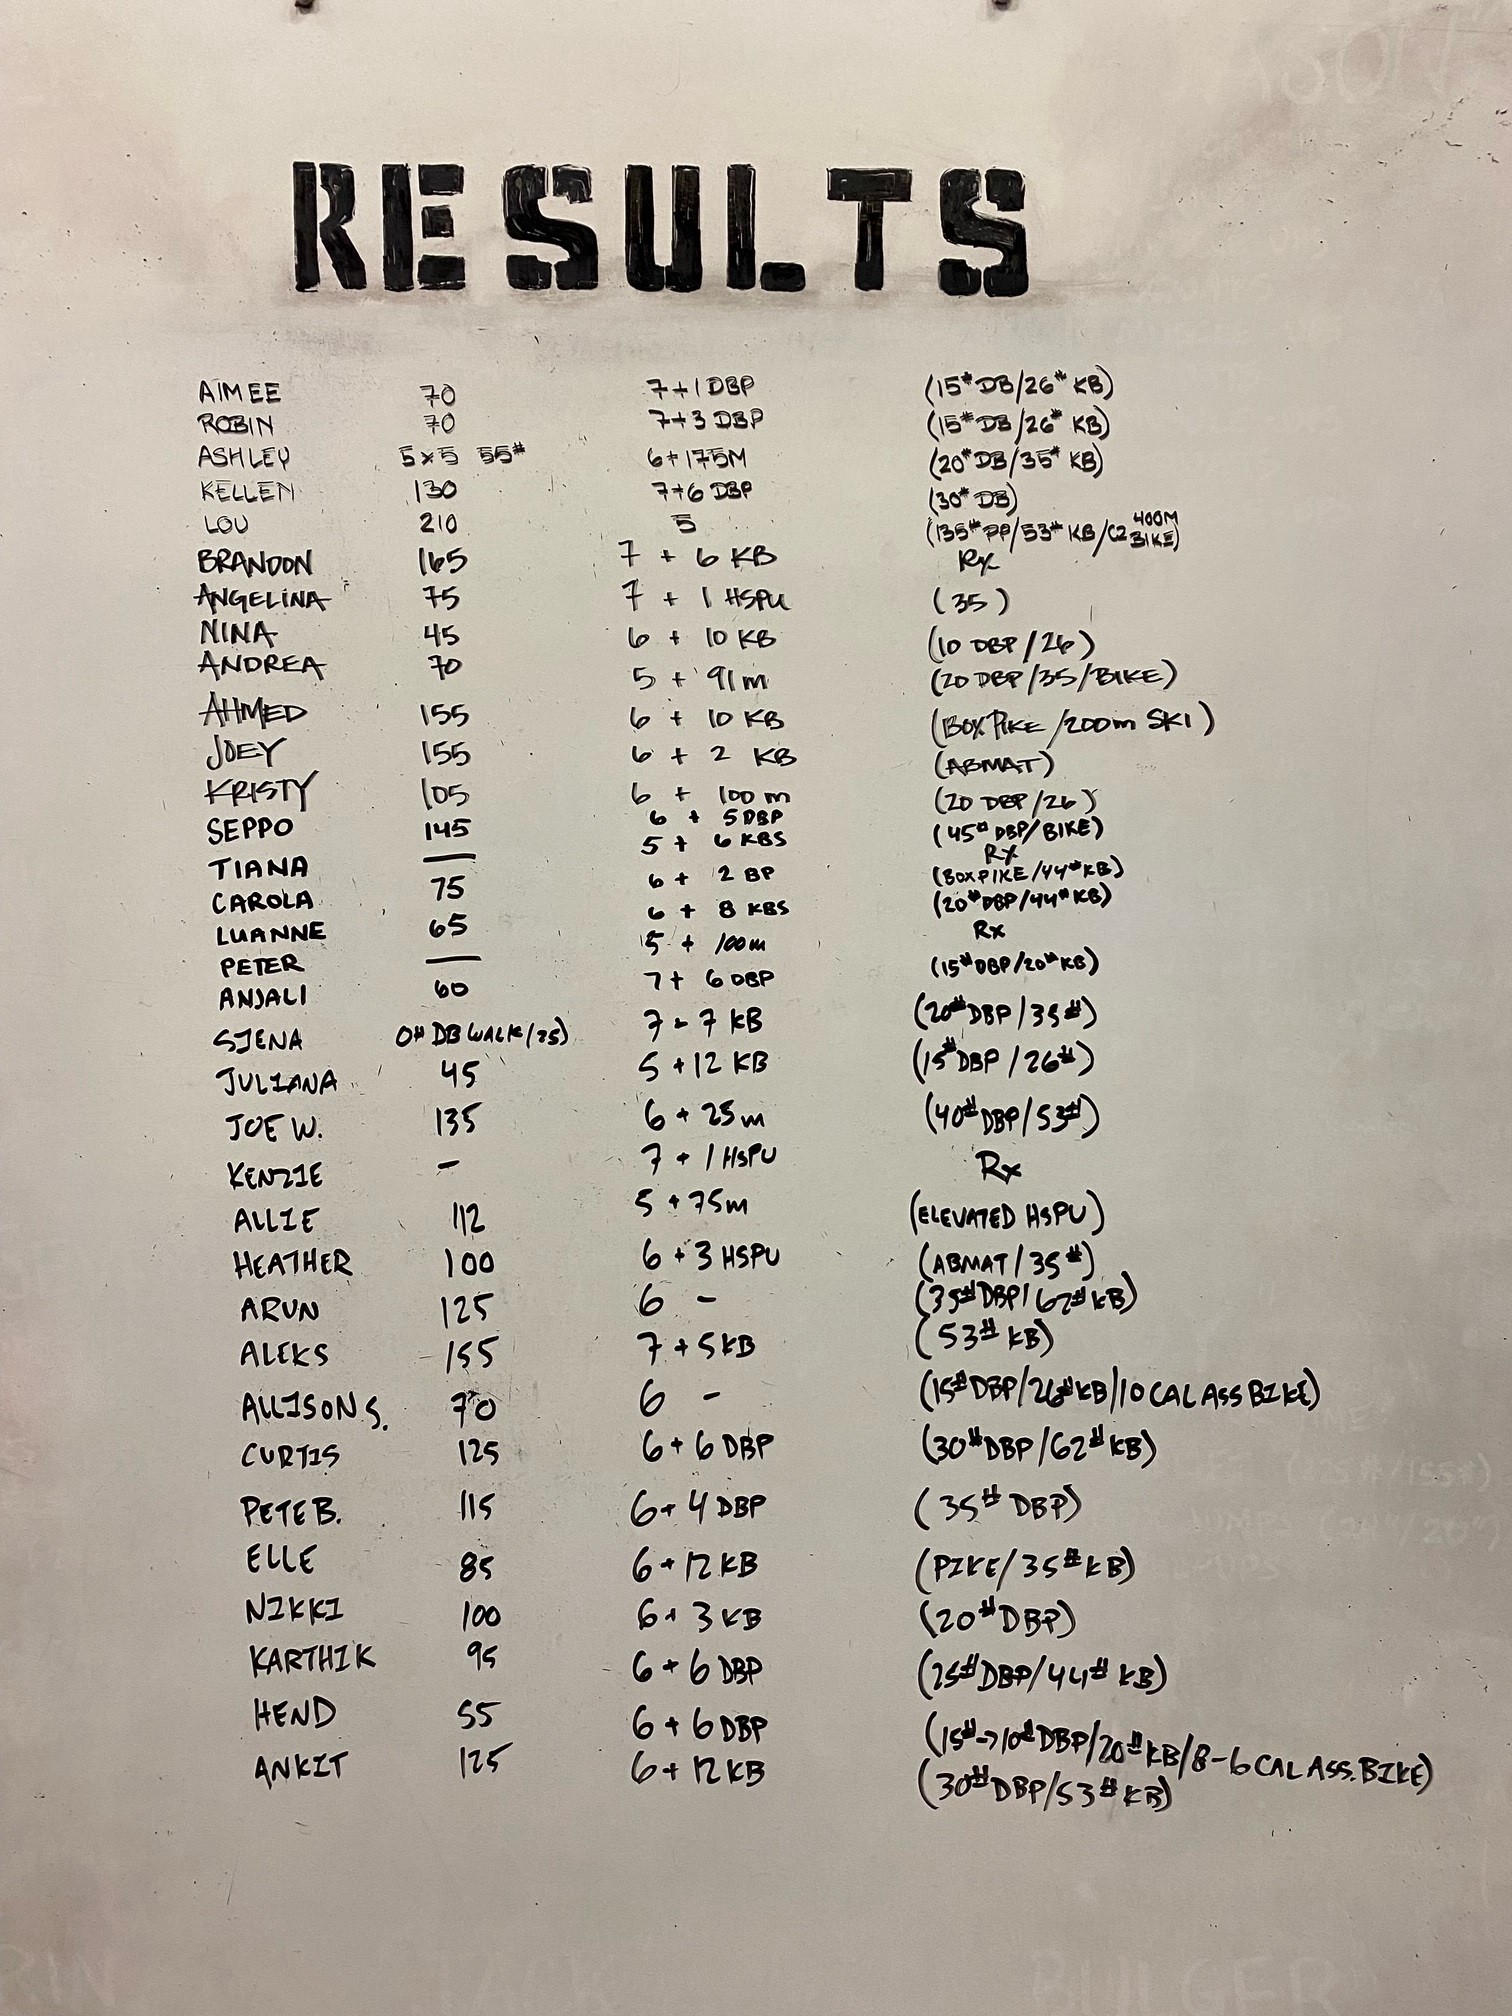 RESULTS
AIMEE 70 7+1 DBP (15# DB/26# KB)
ROBIN 70 7+3 DBP (15# DB/26# KB)
ASHLEY 5x5 55# 6+175M (20# DB/35# KB)
KELLEN 130 7+6 DBP (30# DB)
LOU 210 5 (135# PP/53# KB/C2 400M BIKE)
BRANDON 165 7 + 6 KB Rx
ANGELINA 75 7 + 1 HSPU (35)
NINA 45 6 + 10 KB (10 DBP/26)
ANDREA 70 5 + 91m (20 DBP/35/BIKE)
AHMED 155 6 + 10 KB (BOX PIKE/200m SKI)
JOEY 155 6 + 2 KB (ABMAT)
KRISTY 105 6 + 100m (20 DBP/26)
SEPPO 145 6 + 5 DBP (45# DBP/BIKE)
TIANA — 5 + 6 KBS Rx
CAROLA 75 6 + 2 BP (BOX PIKE/44# KB)
LUANNE 65 6 + 8 KBS (20# DBP/44# KB)
PETER — 5 + 100m Rx
ANJALI 60 7+ 6 DBP (15# DBP/20# KB)
SIENA 0# DB WALK/25) 7 + 7 KB (20# DBP/35#)
JULIANA 45 5 + 12 KB (15# DBP/26#)
JOE W. 135 6 + 25m (40# DBP/53#)
KENZIE - 7 + 1 HSPU Rx
ALLIE 112 5 + 75m (ELEVATED HSPU)
HEATHER 100 6 + 3 HSPU (ABMAT/35#)
ARUN 125 6 - (35# DBP/62# KB)
ALEKS 155 7 + 5 KB (53# KB)
ALLISON S. 70 6 - (15# DBP/26# KB/10 CAL ASS BIKE)
CURTIS 125 6 + 6 DBP (30# DBP/62# KB)
PETE B. 115 6 + 4 DBP (35# DBP)
ELLE 85 6 + 12 KB (PIKE/35# KB)
NIKKI 100 6 + 3 KB (20# DBP)
KARTHIK 95 6 + 6 DBP (25# DBP/44# KB)
HEND 55 6 + 6 DBP (15#→10# DBP/20# KB/8-6 CAL ASS. BIKE)
ANKIT 125 6 + 12 KB (30# DBP/53# KB)